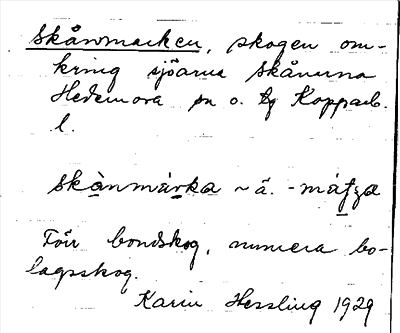 Skånmarken, skogen om-
kring sjöarna Skånerna
Hedemora sn o. tg Kopparb.
l.
skànmàrka ~ ä. -mátza
Förr bondskog, numera bo-
lagsskog.
Karin Hessling 1929